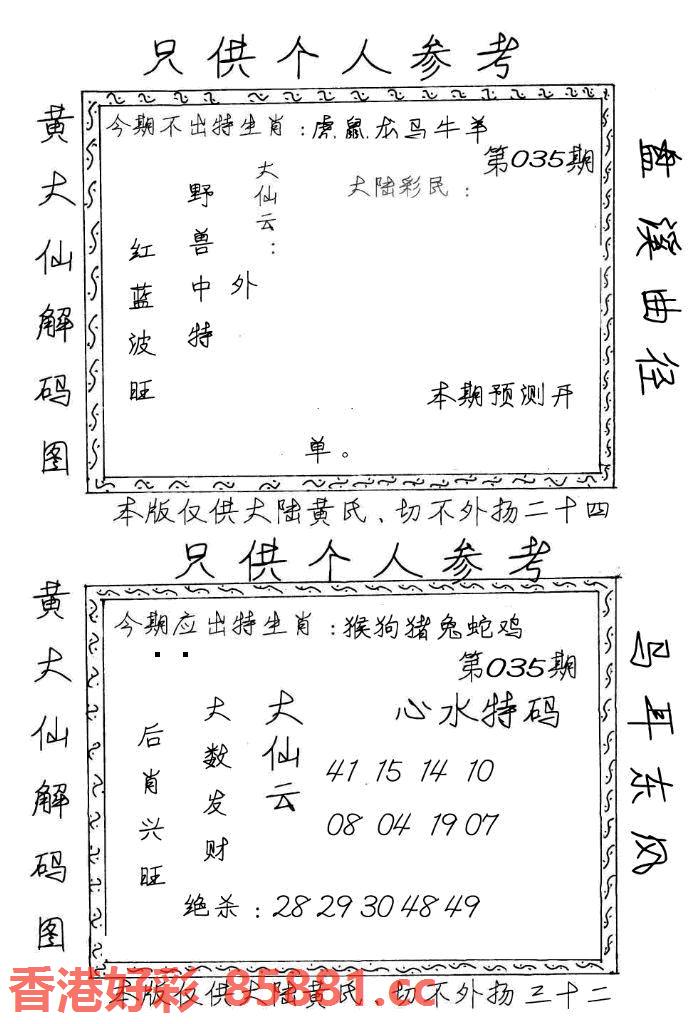 只供个人参考
黄大仙解码图
今期不出特生肖：虎鼠龙马牛羊
第035期
大仙云：
大陆彩民：
野兽中特
外
红蓝波旺
本期预测开
单。
盘溪曲径
本版仅供大陆黄氏、切不外扬二十四
只供个人参考
黄大仙解码图
今期应出特生肖：猴狗猪兔蛇鸡
第035期
大仙云
心水特码
大数发财
后肖兴旺
41 15 14 10
08 04 19 07
绝杀：28 29 30 48 49
马耳东风
本版仅供大陆黄氏、切不外扬三十二
香港好彩 85881.cc